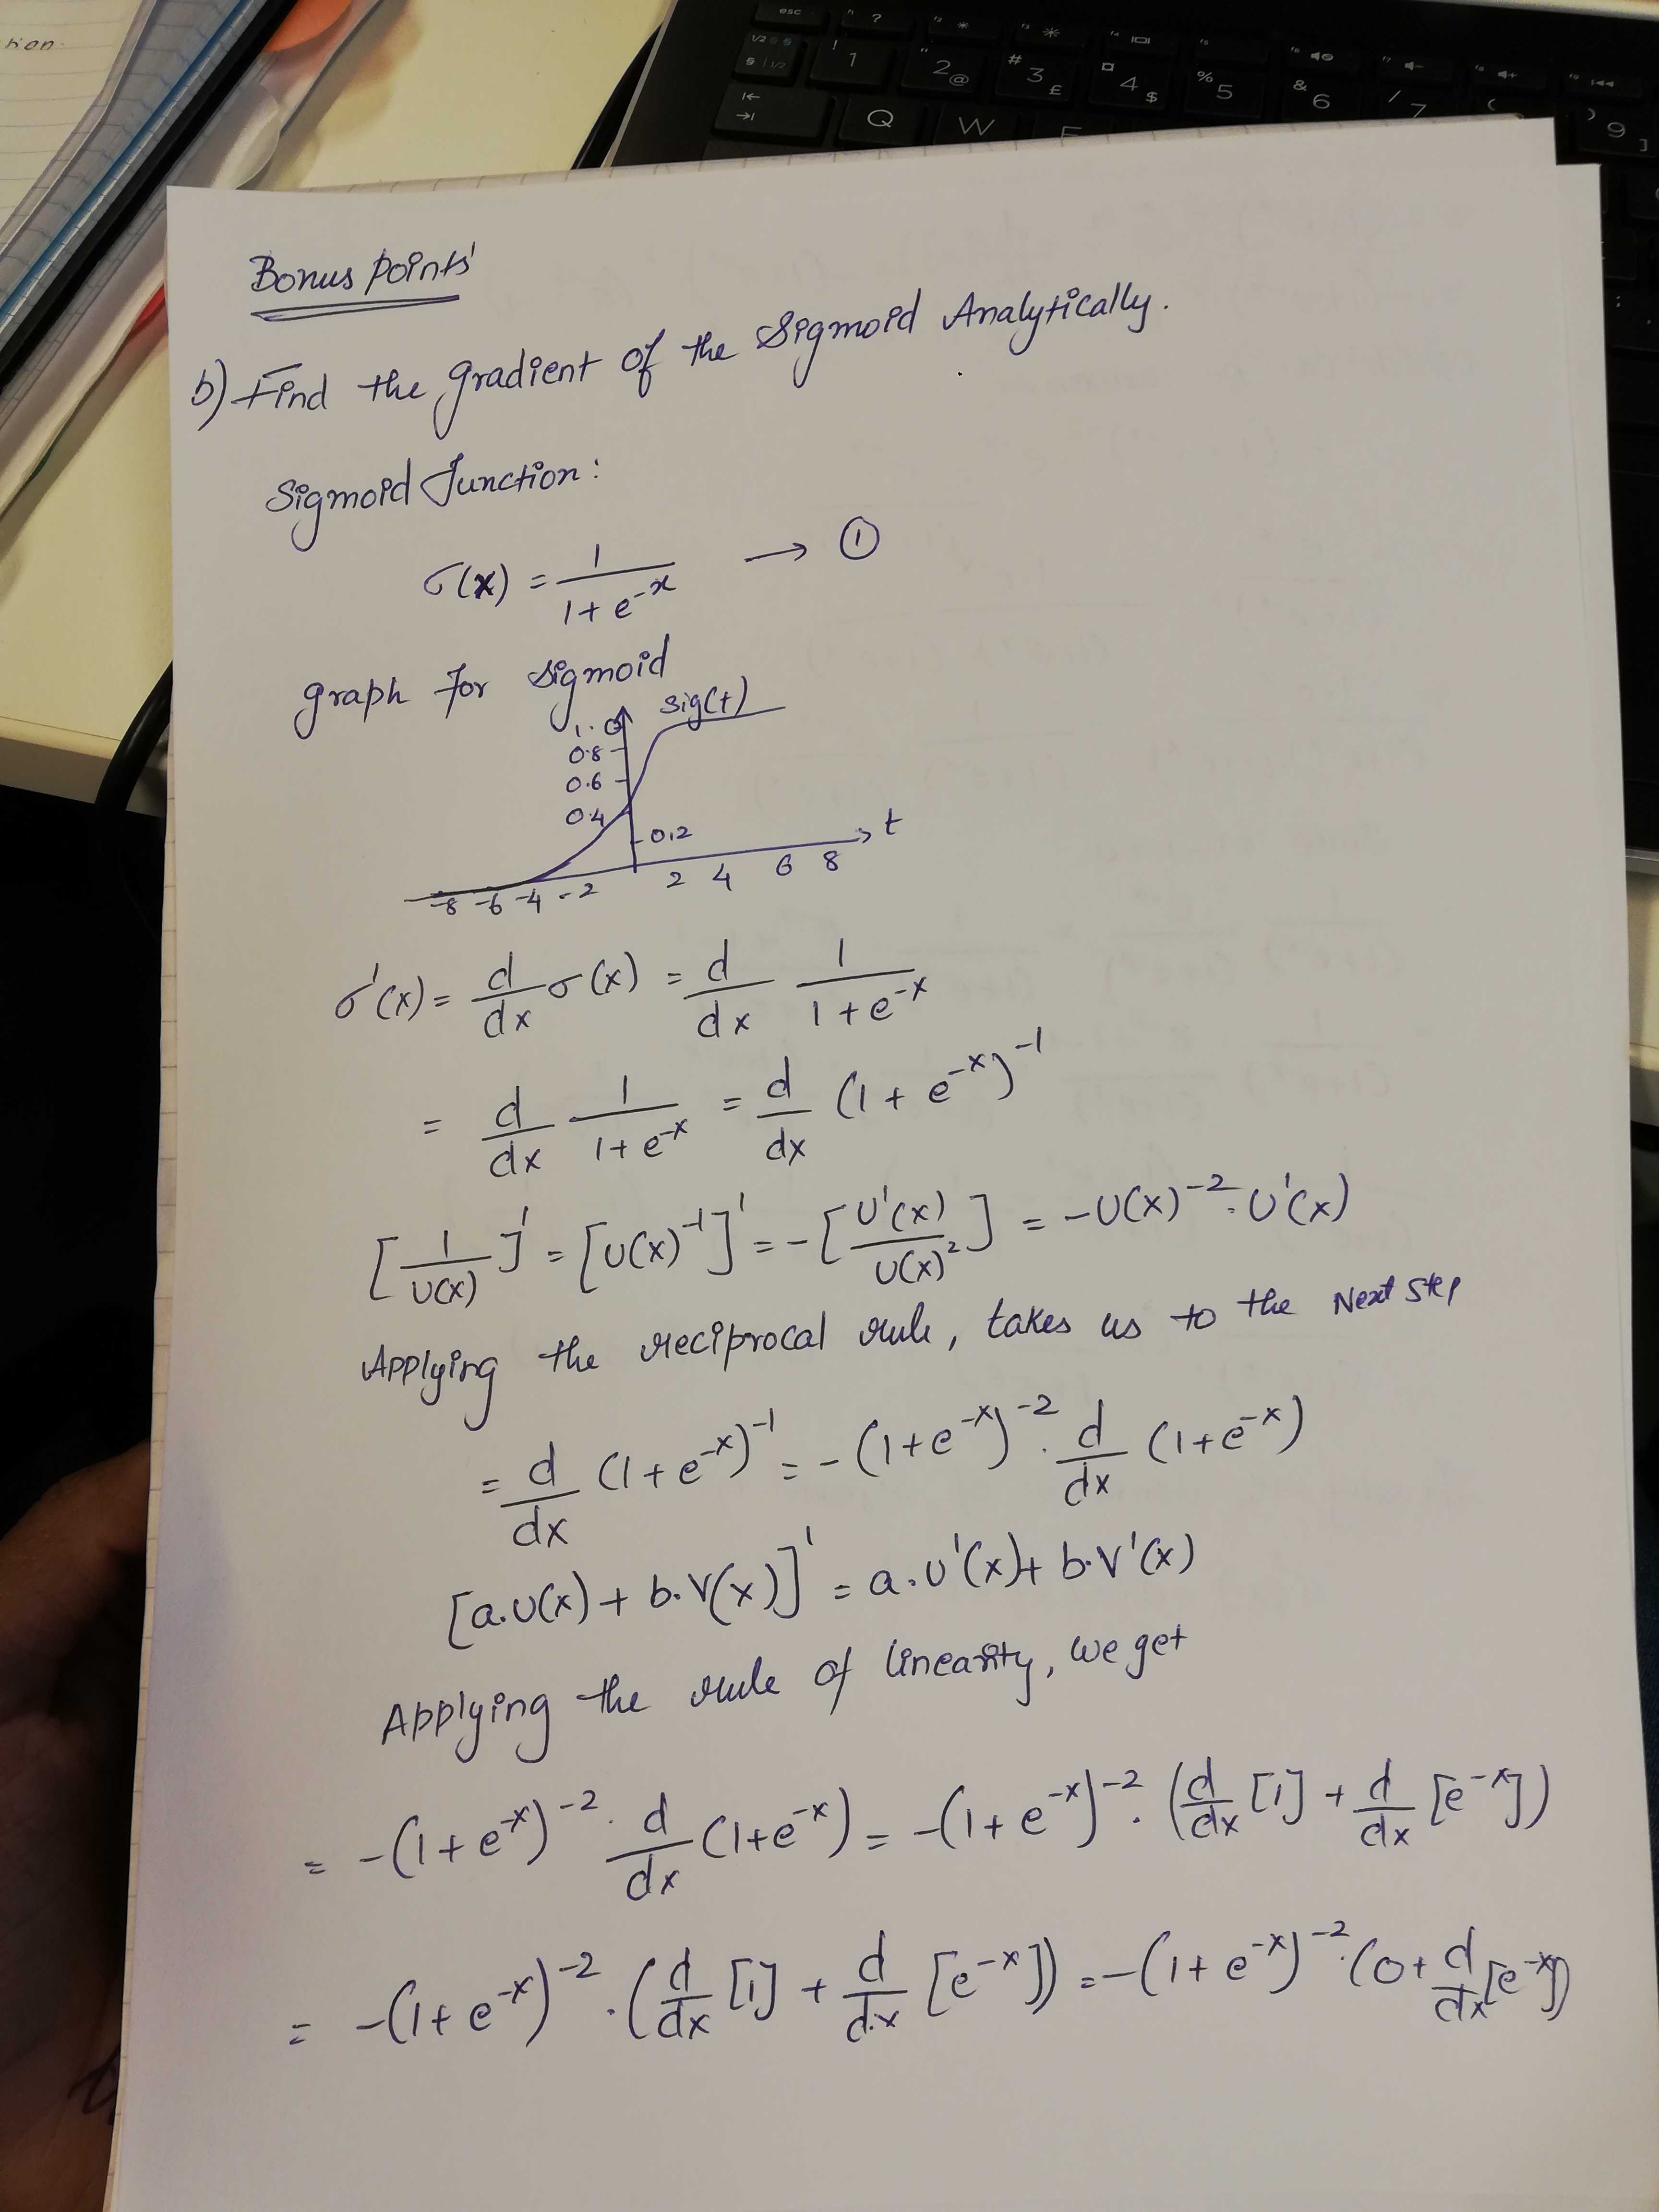 tion.
esc
?
*
*
1/2
§
1/2
!
1
"
2
@
#
3
£
¤
4
$
%
5
&
6
/
7
(
)
9
]
Q
W
Bonus points
b) Find the gradient of the Sigmoid Analytically.
Sigmoid function:
σ(x) = 1/(1+e^-x) → ①
graph for sigmoid
sig(t)
1.0
0.8
0.6
0.4
0.2
t
-8 -6 -4 -2 2 4 6 8
σ'(x) = d/dx σ(x) = d/dx 1/(1+e^-x)
= d/dx 1/(1+e^-x) = d/dx (1+e^-x)^-1
[1/U(x)]' = [U(x)^-1]' = -[U'(x)/U(x)^2] = -U(x)^-2 . U'(x)
Applying the reciprocal rule, takes us to the Next step
= d/dx (1+e^-x)^-1 = -(1+e^-x)^-2 . d/dx (1+e^-x)
[a.U(x) + b.V(x)]' = a.U'(x) + b.V'(x)
Applying the rule of linearity, we get
= -(1+e^-x)^-2 . d/dx (1+e^-x) = -(1+e^-x)^-2 . (d/dx [1] + d/dx [e^-x])
= -(1+e^-x)^-2 . (d/dx [1] + d/dx [e^-x]) = -(1+e^-x)^-2 . (0 + d/dx [e^-x])